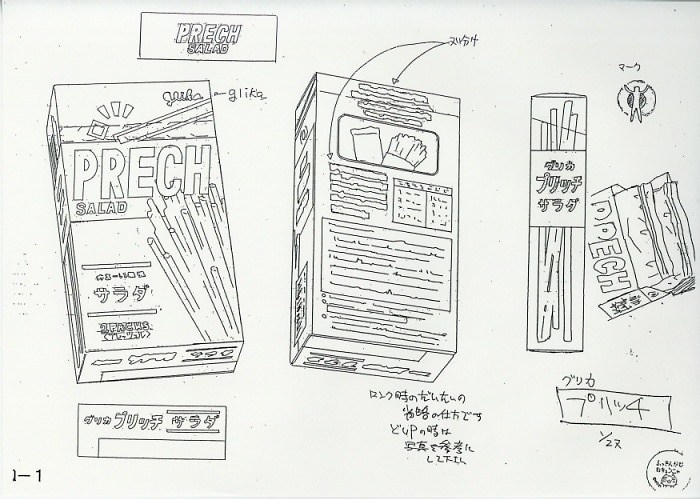 PRECH
SALAD
ヌリ分け
マーク
glika
glika
PRECH
SALAD
サラダ
2 PACKS
グリカ
プリッチ
サラダ
PRECH
グリカ
プリッチ
グリカ プリッチ サラダ
ロング時のだいたいの
省略の仕方です
どUPの時は
写真を参考に
して下さい
1-1